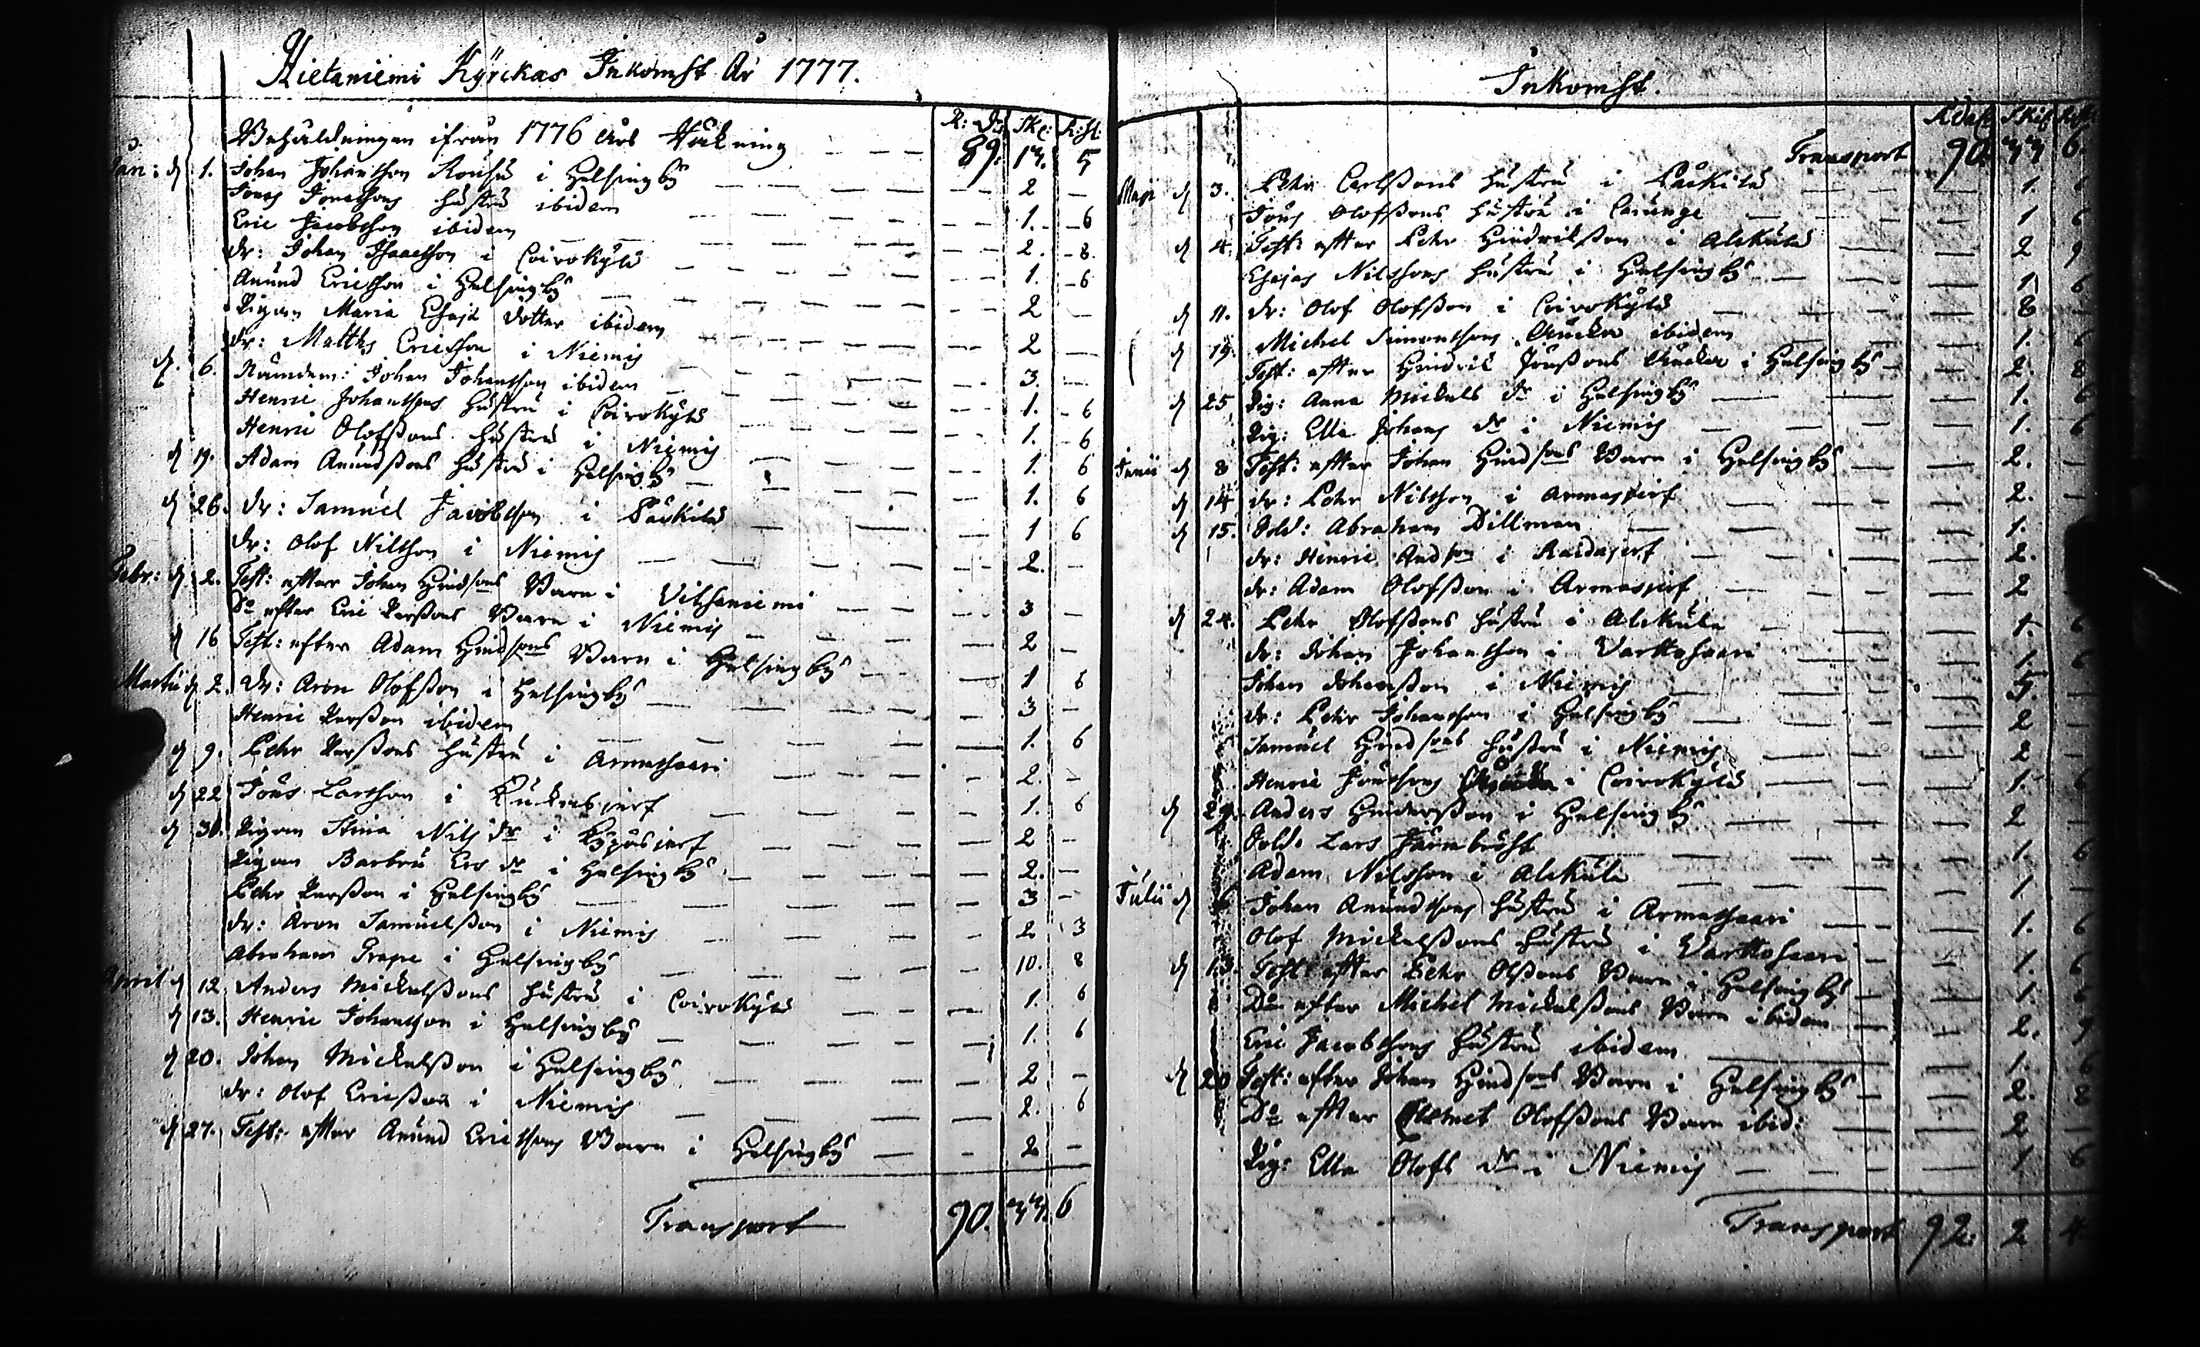 Hietaniemi Kyrckas Inkomst År 1777.
R: dr Sk: R:st
Behåldningen ifrån 1776 års Räkning — — — 89. 17. 5
Jan: d 1. Johan Johansson Rousu i Helsingby — — — 2 —
Jöns Jönssons hustru ibidem — — — 1. 6
Eric Jacobsson ibidem — — — 2. 8.
dr: Johan Isaacsson i Coirokylä — — — 1. 6
Anund Ericsson i Helsingby — — — 2 —
Pigan Maria Esajæ dotter ibidem — — — 2 —
dr: Matths Ericsson i Niemis — — — 3. —
d. 6. Nämndem: Johan Johansson ibidem — — — 1. 6
Henric Johanssons hustru i Coirokylä — — — 1. 6
Henric Olofssons hustru i Niemis — — — 1. 6
d 19. Adam Anundssons hustru i Helsingby — — — 1. 6
d 26. dr: Samuel Jacobsson i Päkkilä — — — 1 6
dr: Olof Nilsson i Niemis — — — 2. —
Febr: d 2. Test: efter Johan Hindsons Barn i Vitsaniemi — — — 3 —
Do efter Eric Perssons Barn i Niemis — — — 2 —
d 16 Test: efter Adam Hindsons Barn i Helsingby — — — 1 6
Martii d 2. dr: Aron Olofsson i Helsingby — — — 3 —
Henric Persson ibidem — — — 1. 6
d 9. Pehr Perssons hustru i Armassaari — — — 2. —
d 22 Jöns Larsson i Kuckasjerf — — — 1. 6
d 30. Pigan Stina Nils dr i Hjrf — — — 2 —
Pigan Barbru Ers dr i Helsingby — — — 2. —
Pehr Persson i Helsingby — — — 3 —
dr: Aron Samuelsson i Niemis — — — 2 3
Abraham Grape i Helsingby — — — 10. 8
April d 12. Anders Mickelssons hustru i Coirokylä — — — 1. 6
d 13. Henric Johansson i Helsingby — — — 1. 6
d 20. Johan Mickelsson i Helsingby — — — 2 —
dr: Olof Ericsson i Niemis — — — 2. 6
d 27. Test: efter Anund Ericssons Barn i Helsingby — — — 2 —
Transport 90. 33. 6
Inkomst.
Rdal Skil
Transport 90. 33 6.
Maji d 3. Pehr Carlssons hustru i Päkkilä — — — 1.
Jöns Olofssons hustru i Carunge — — — 1 6
d 4. Test: efter Pehr Hindricksson i Alckula — — — 2 9
Esajas Nilssons hustru i Helsingby — — — 1 6
d 11. dr: Olof Olofsson i Coirokylä — — — 8 —
d 19. Michel Simonssons Äncka ibidem — — — 1.
Test: efter Hindric Jönssons Äncka i Helsingby — 2. 8
d 25 Pig: Anna Mickels dr i Helsingby — — — 1. 6
Pig: Ella Johans dr i Niemis — — — 1. 6
Junii d 8 Test: efter Johan Hindsons Barn i Helsingby — 2. —
d 14 dr: Pehr Nilsson i Armasjerf — — — 2. —
d 15. Sold: Abraham Dillman — — — 1.
dr: Henric Andson i Raidajerf — — — 2.
dr: Adam Olofsson i Armasjerf — — — 2
d 24. Pehr Olofssons hustru i Alckula — — — 1. 6
dr: Johan Johansson i Vartkosaari — — — 1. 6
Johan Johansson i Niemis — — — 5. —
dr: Pehr Johansson i Helsingby — — — 2 —
Samuel Hindsons hustru i Niemis — — — 2 —
Henric Jönssons Äncka i Coirokylä — — — 1. 6
d 29. Anders Hindersson i Helsingby — — — 2 —
Sold. Lars Järnbröst — — — 1. 6
Adam Nilsson i Alckula — — — 1. —
Julii d 6 Johan Anundssons hustru i Armassaari — — — 1. 6
Olof Mickelssons hustru i Vartkosaari — — — 1. 6
d 13. Test: efter Pehr Olssons Barn i Helsingby — 1. 6
Do efter Michel Mickelssons Barn ibidem — 2. 9
Eric Jacobssons hustru ibidem — — — 1. 6
d 20 Test: efter Johan Hindsons Barn i Helsingby — 2. 8
Do efter Clemet Olofssons Barn ibid: — — — 2 —
Pig: Ella Olofs dr i Niemis — — — 1 6
Transport 92. 2 4.